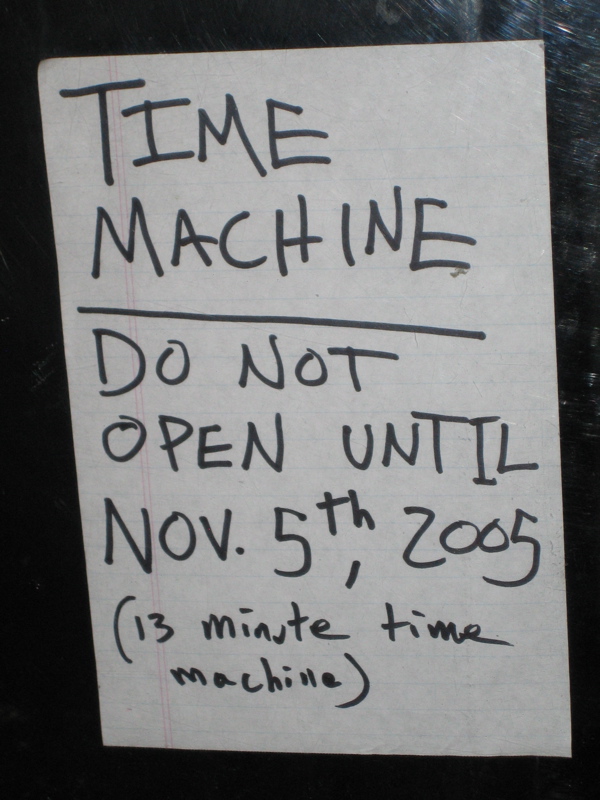 TIME
MACHINE
DO NOT
OPEN UNTIL
NOV. 5th, 2005
(13 minute time
machine)